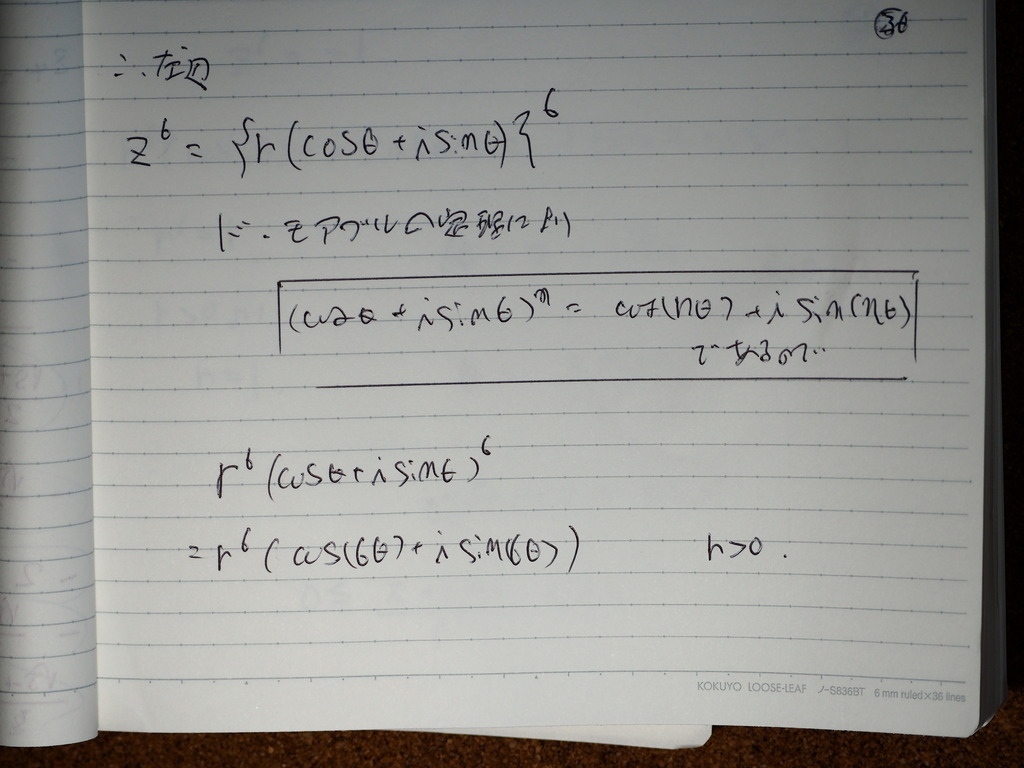 ∴左辺
z⁶ = {r(cosθ + i sinθ)}⁶
ド・モアブルの定理により
(cosθ + i sinθ)ⁿ = cos(nθ) + i sin(nθ)
であるので…
r⁶(cosθ + i sinθ)⁶
= r⁶(cos(6θ) + i sin(6θ)) r>0.
KOKUYO LOOSE-LEAF ノ-S836BT 6 mm ruled×36 lines